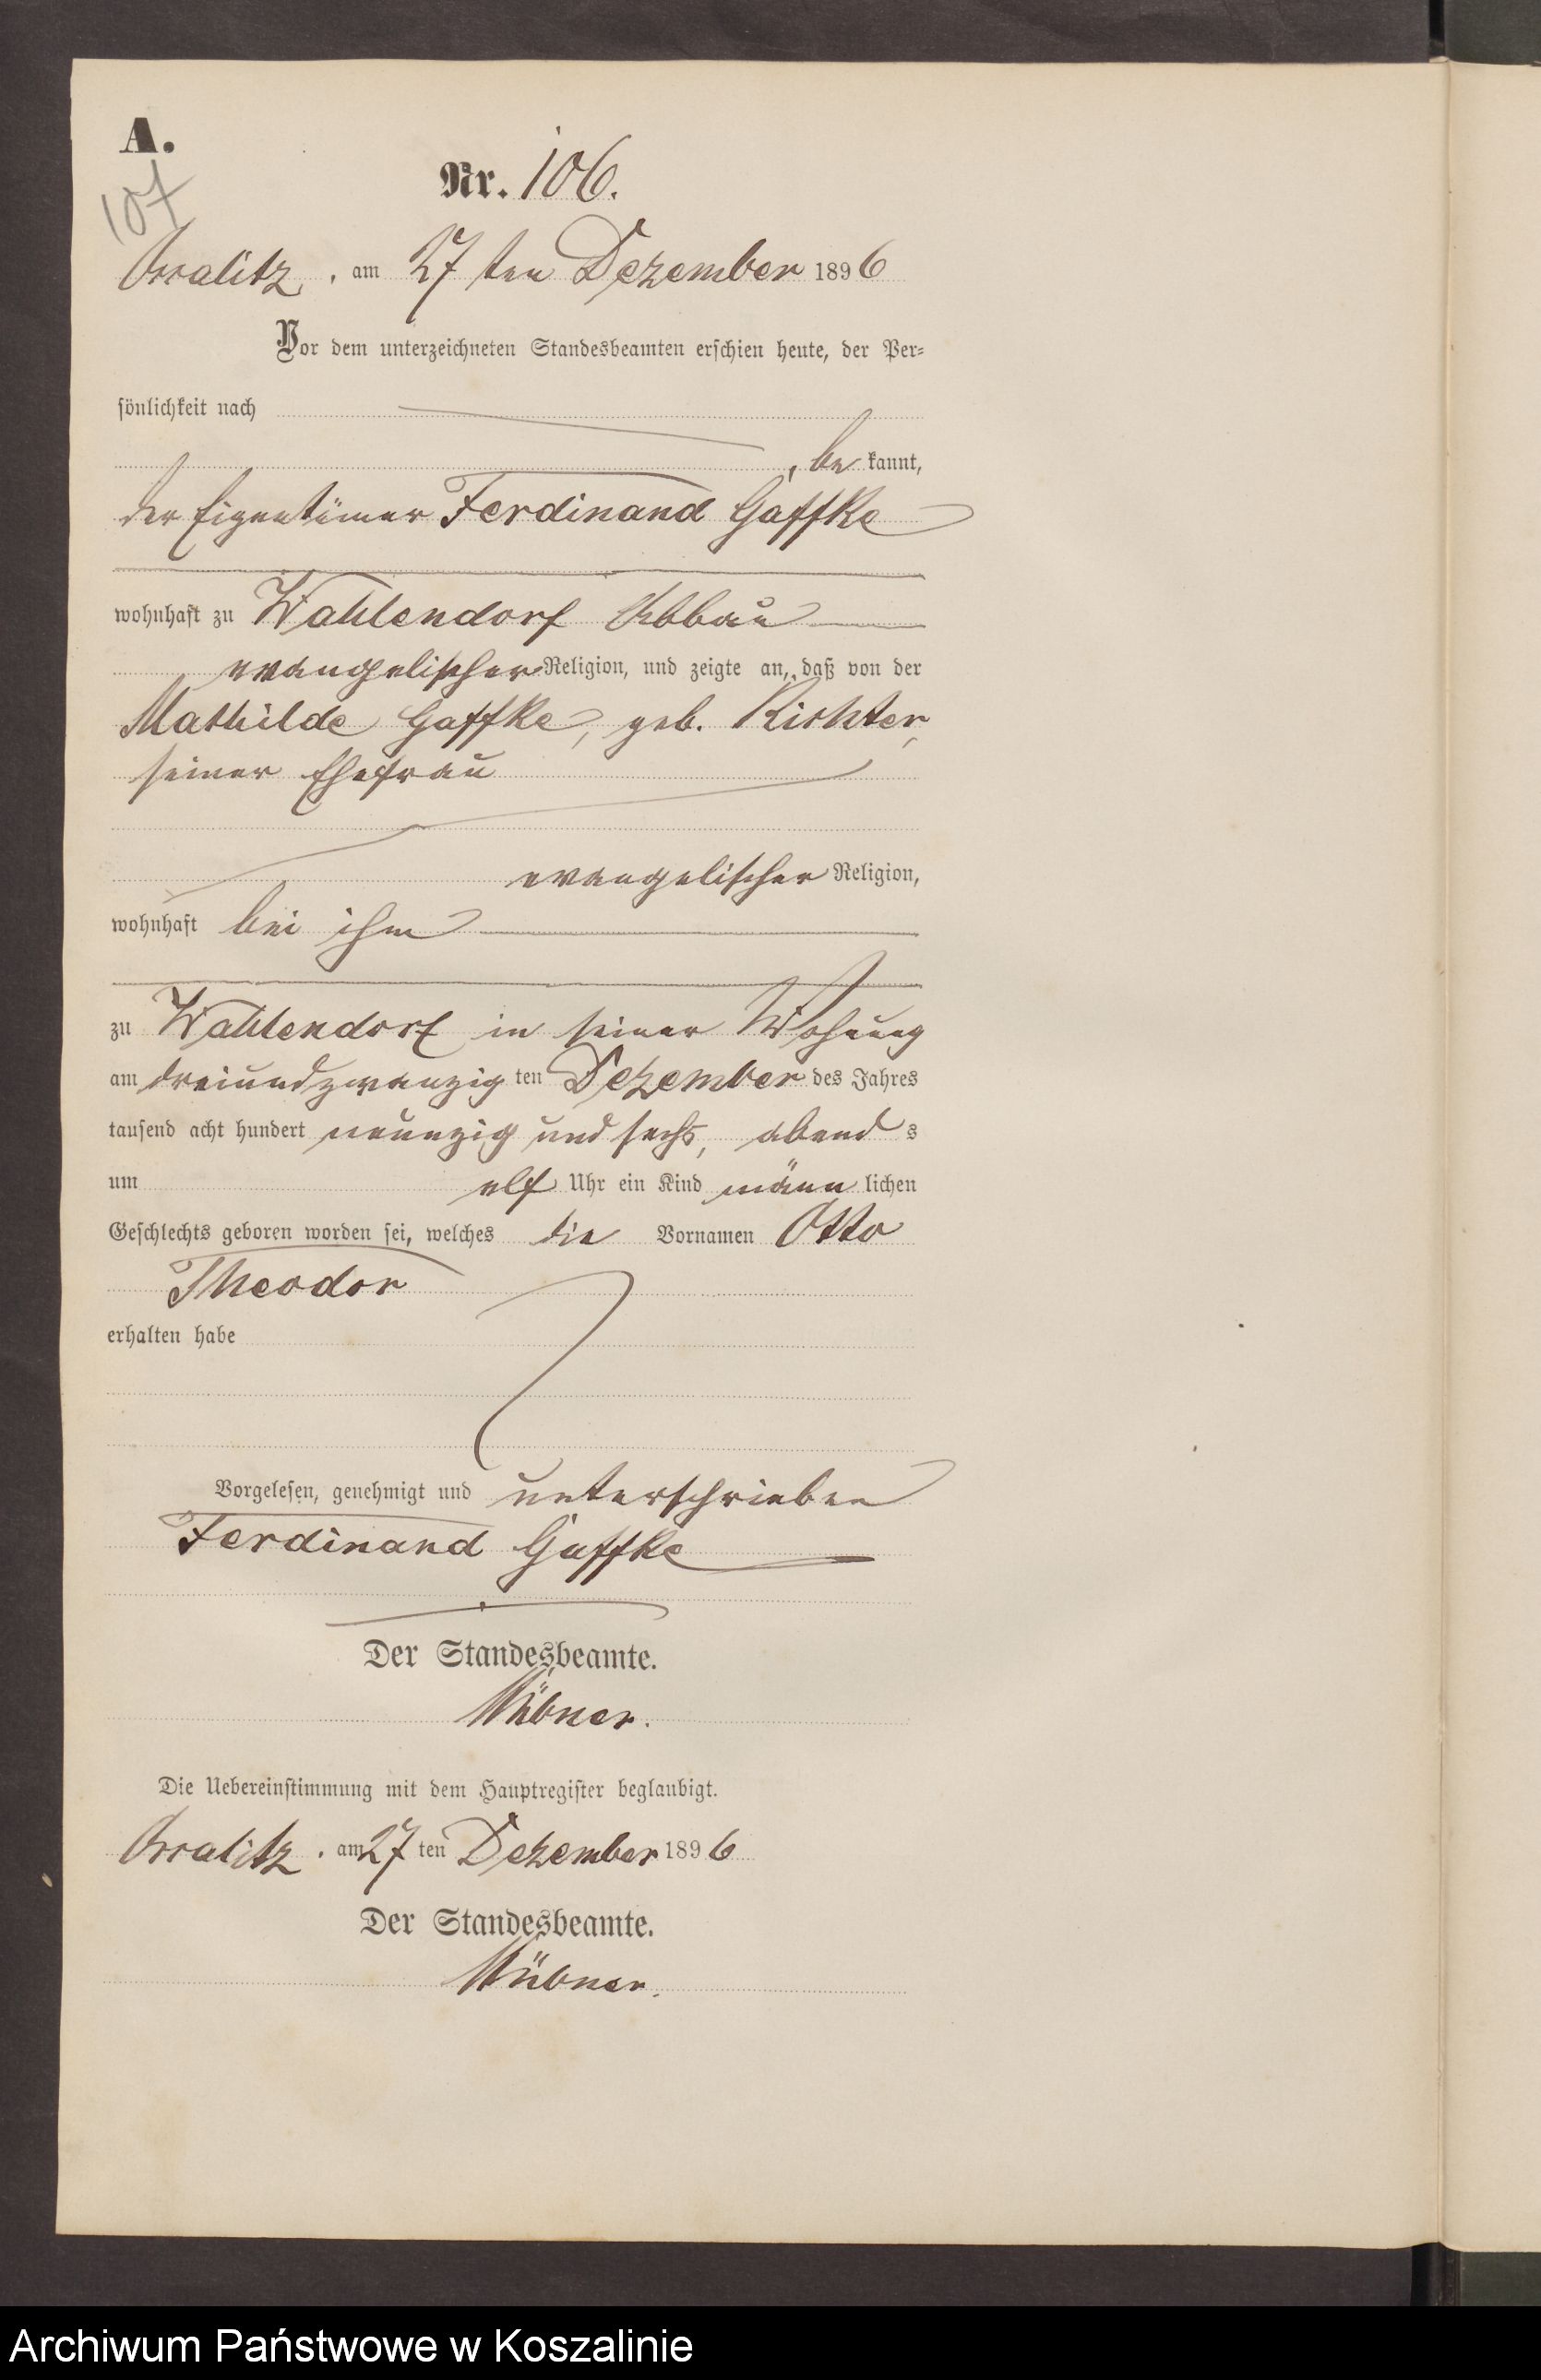 A.
107
Nr. 106.
Arralitz, am 27 ten Dezember 1896
Vor dem unterzeichneten Standesbeamten erschien heute, der Per-
sönlichkeit nach
, be kannt,
der Eigentümer Ferdinand Gaffke
wohnhaft zu Wahlendorf Abbau
evangelischer Religion, und zeigte an, daß von der
Mathilde Gaffke, geb. Richter,
seiner Ehefrau
evangelischer Religion,
wohnhaft bei ihm
zu Wahlendorf in seiner Wohnung
am dreiundzwanzig ten Dezember des Jahres
tausend acht hundert neunzig und sechs, abend s
um elf Uhr ein Kind männ lichen
Geschlechts geboren worden sei, welches die Vornamen Otto
Theodor
erhalten habe
Vorgelesen, genehmigt und unterschrieben
Ferdinand Gaffke
Der Standesbeamte.
Die Uebereinstimmung mit dem Hauptregister beglaubigt.
Arralitz, am 27 ten Dezember 1896
Der Standesbeamte.
Archiwum Państwowe w Koszalinie